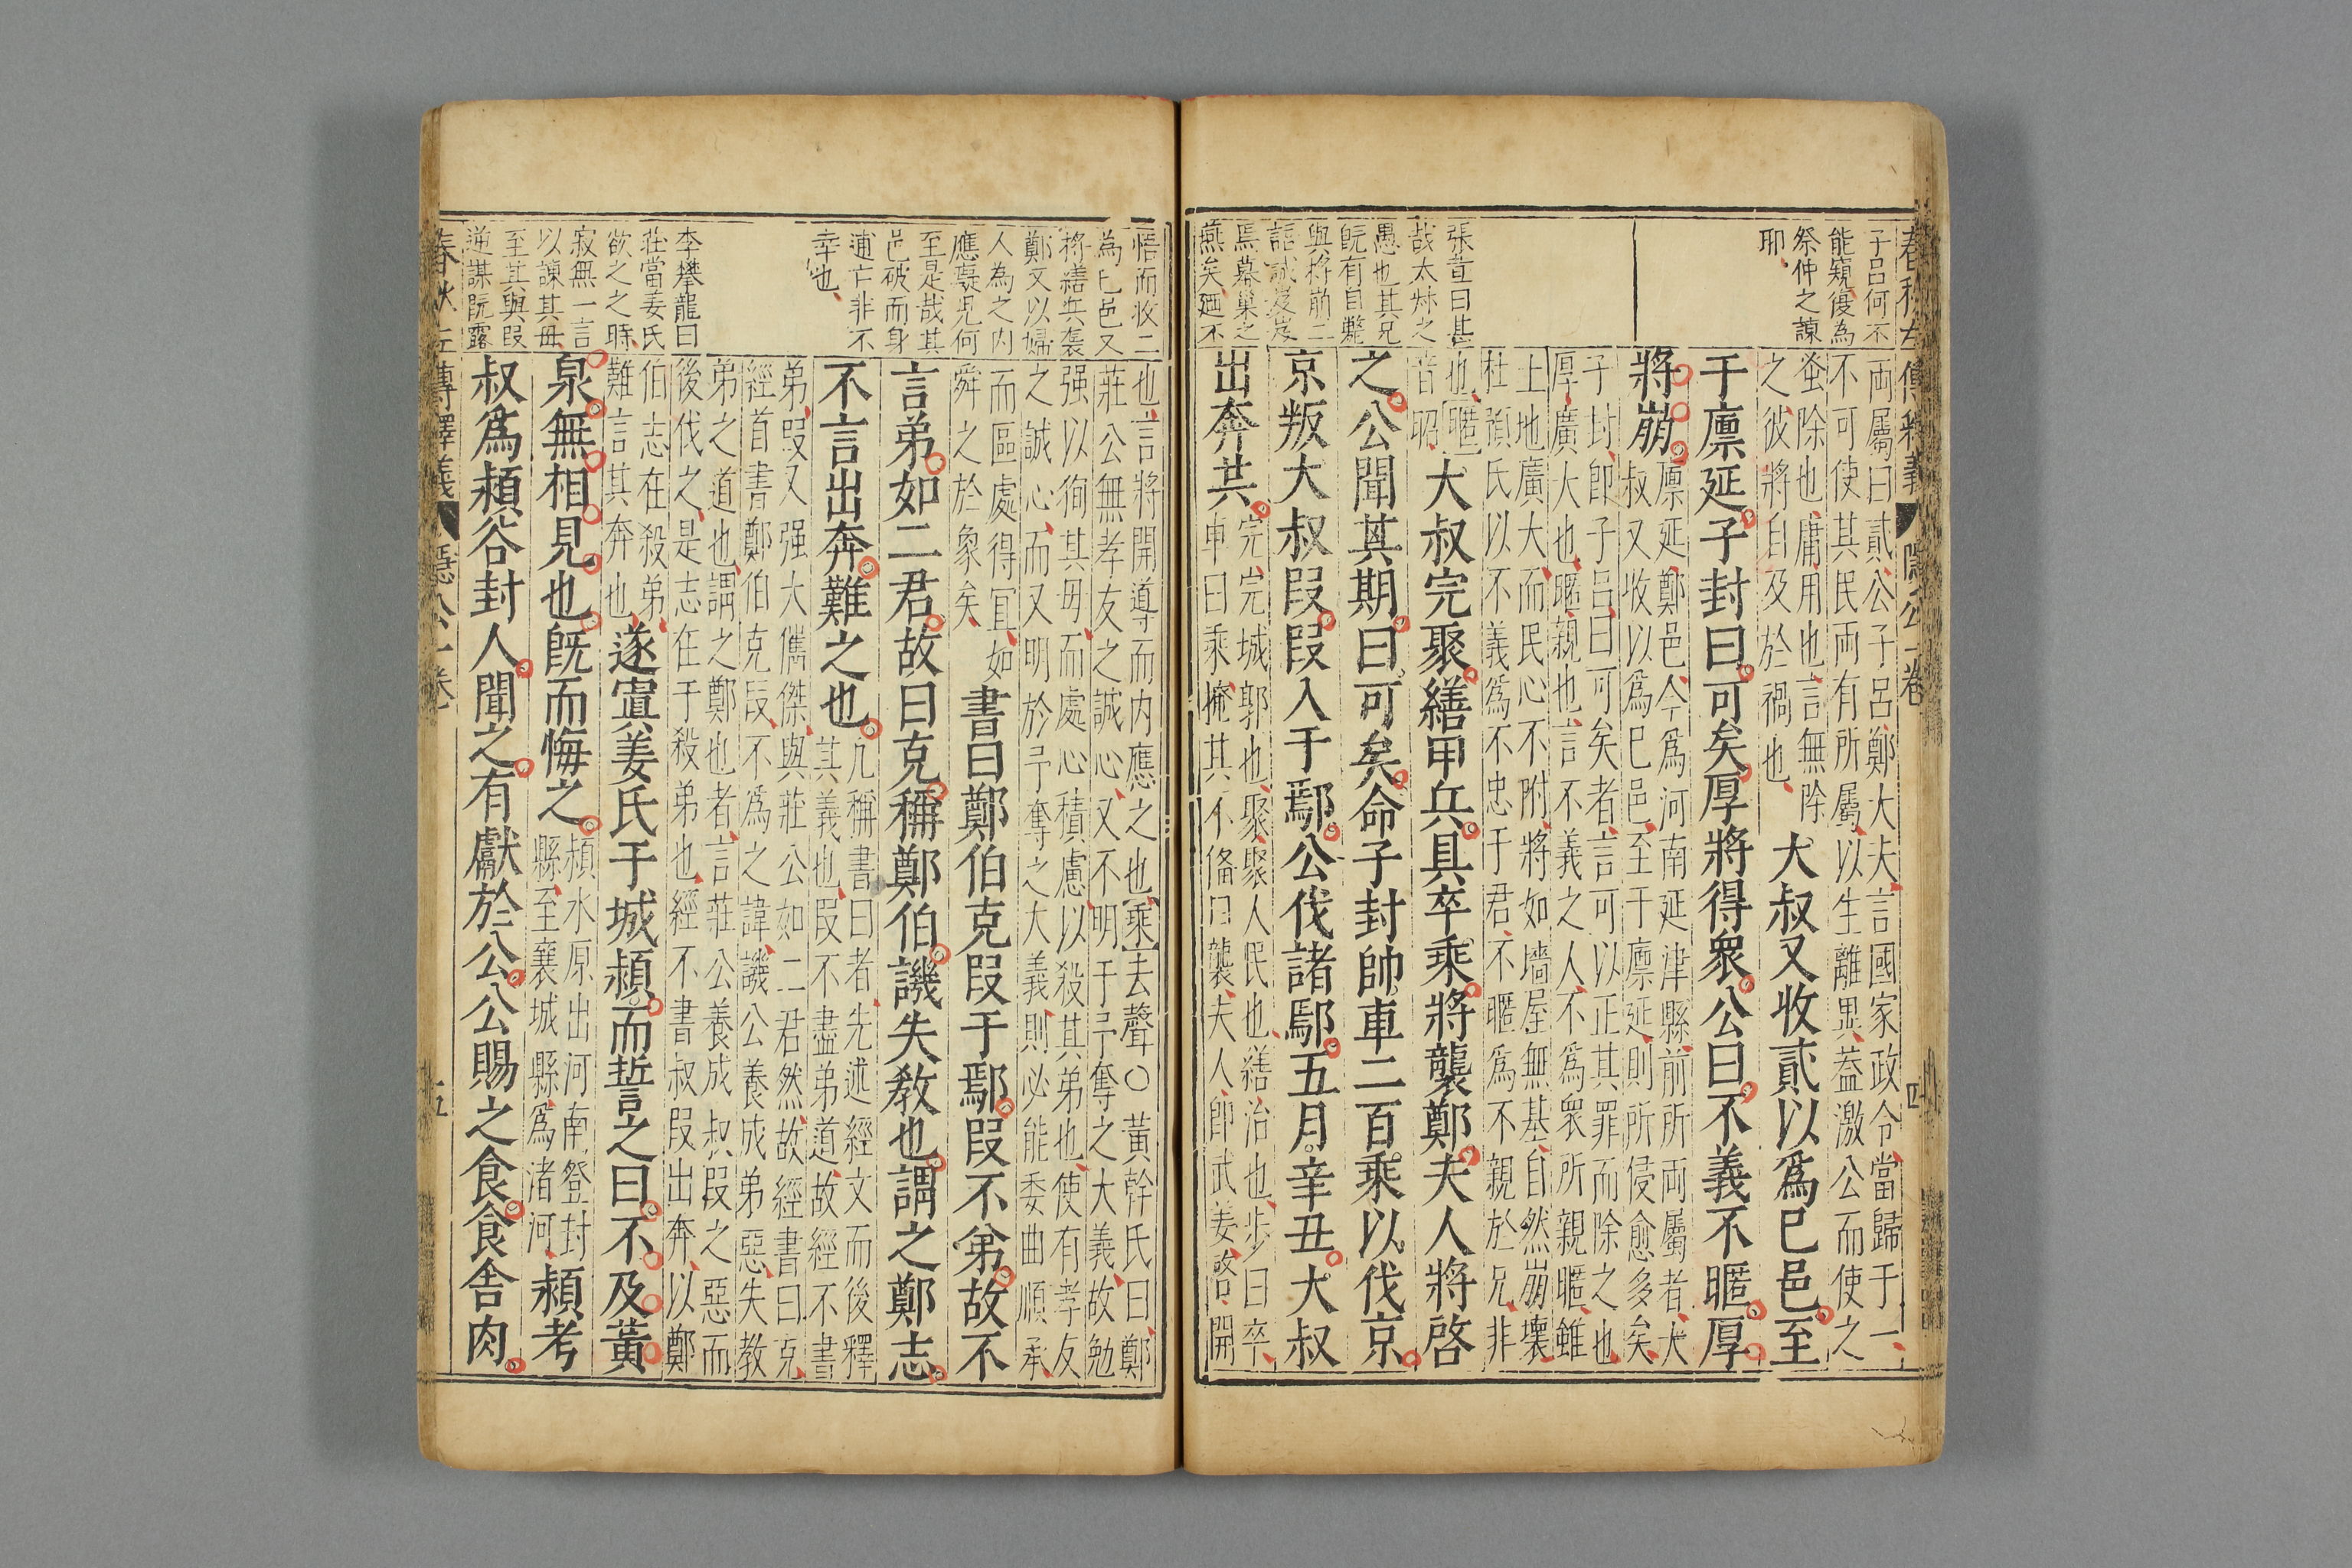 春秋左傳釋義 隱公一卷 四
子呂何不
能窺復為
祭仲之諫
耶
曰甚
哉太叔之
愚也其兄
既有自斃
與將崩二
語誠岌岌
焉幕巢之
燕矣廼不
両屬曰貳公子呂鄭大夫言國家政令當歸于一
不可使其民両有所屬以生離異葢激公而使之
蚤除也庸用也言無除
之彼將自及於禍也
大叔又收貳以爲巳邑至
于廪延子封曰可矣厚將得衆公曰不義不暱厚
將崩
廪延鄭邑今爲河南延津縣前所両屬者大
叔又收以爲巳邑至于廪延則所侵愈多矣
子封即子呂曰可矣者言可以正其罪而除之也
厚廣大也暱親也言不義之人不爲衆所親暱雖
土地廣大而民心不附將如墻屋無基自然崩壞
杜預氏以不義爲不忠于君不暱爲不親於兄非
也暱
音昵
大叔完聚繕甲兵具卒乘將襲鄭夫人將啓
之公聞其期曰可矣命子封帥車二百乘以伐京
京叛大叔叚叚入于鄢公伐諸鄢五月辛丑大叔
出奔共
完完城郭也聚聚人民也繕治也步曰卒
車曰乘掩其不備曰襲夫人即武姜啓開
悟而收二
為己邑又
將繕兵襲
鄭文以婦
人為之内
應嬖兒何
至是哉其
邑破而身
逋亡非不
幸也
李攀龍曰
莊當姜氏
欲之之時
寂無一言
以諫其母
至其與叚
逆謀既露
也言將開導而内應之也乘去聲○黃幹氏曰鄭
莊公無孝友之誠心又不明于予奪之大義故勉
强以徇其母而處心積慮以殺其弟也使有孝友
之誠心而又明於予奪之大義則必能委曲順承
而區處得冝如
舜之於象矣
書曰鄭伯克叚于鄢叚不弟故不
言弟如二君故曰克稱鄭伯譏失教也謂之鄭志
不言出奔難之也
凢稱書曰者先述經文而後釋
其義也叚不盡弟道故經不書
弟叚又强大儁傑與莊公如二君然故經書曰克
經首書鄭伯克叚不爲之諱譏公養成弟惡失教
弟之道也謂之鄭也者言莊公養成叔叚之惡而
後伐之是志在于殺弟也經不書叔叚出奔以鄭
伯志在殺弟
難言其奔也
遂寘姜氏于城頴而誓之曰不及黃
泉無相見也既而悔之
頴水原出河南登封
縣至襄城縣爲渚河
頴考
叔爲頴谷封人聞之有獻於公公賜之食食舍肉
春秋左傳釋義 隱公一卷 五